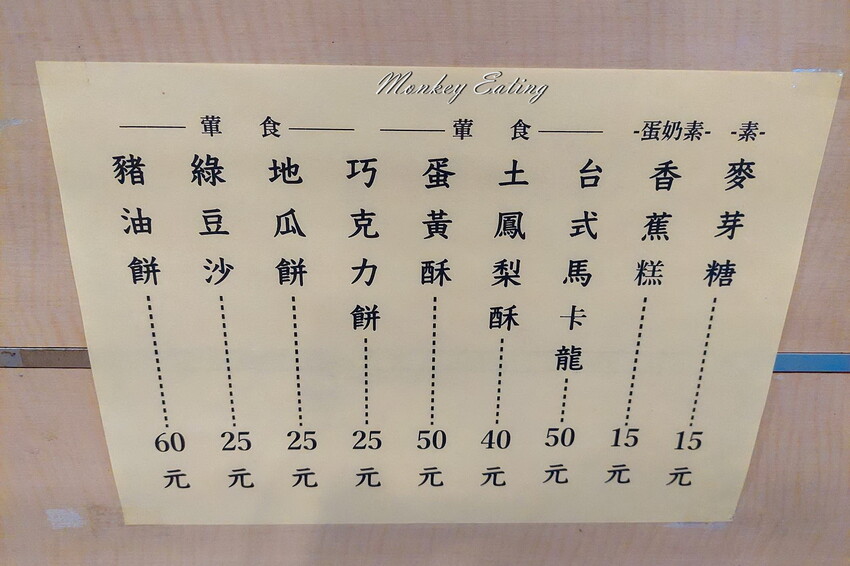 Monkey Eating
葷 食 葷 食 -蛋奶素- -素-
麥芽糖 15元
香蕉糕 15元
台式馬卡龍 50元
土鳳梨酥 40元
蛋黃酥 50元
巧克力餅 25元
地瓜餅 25元
綠豆沙 25元
豬油餅 60元